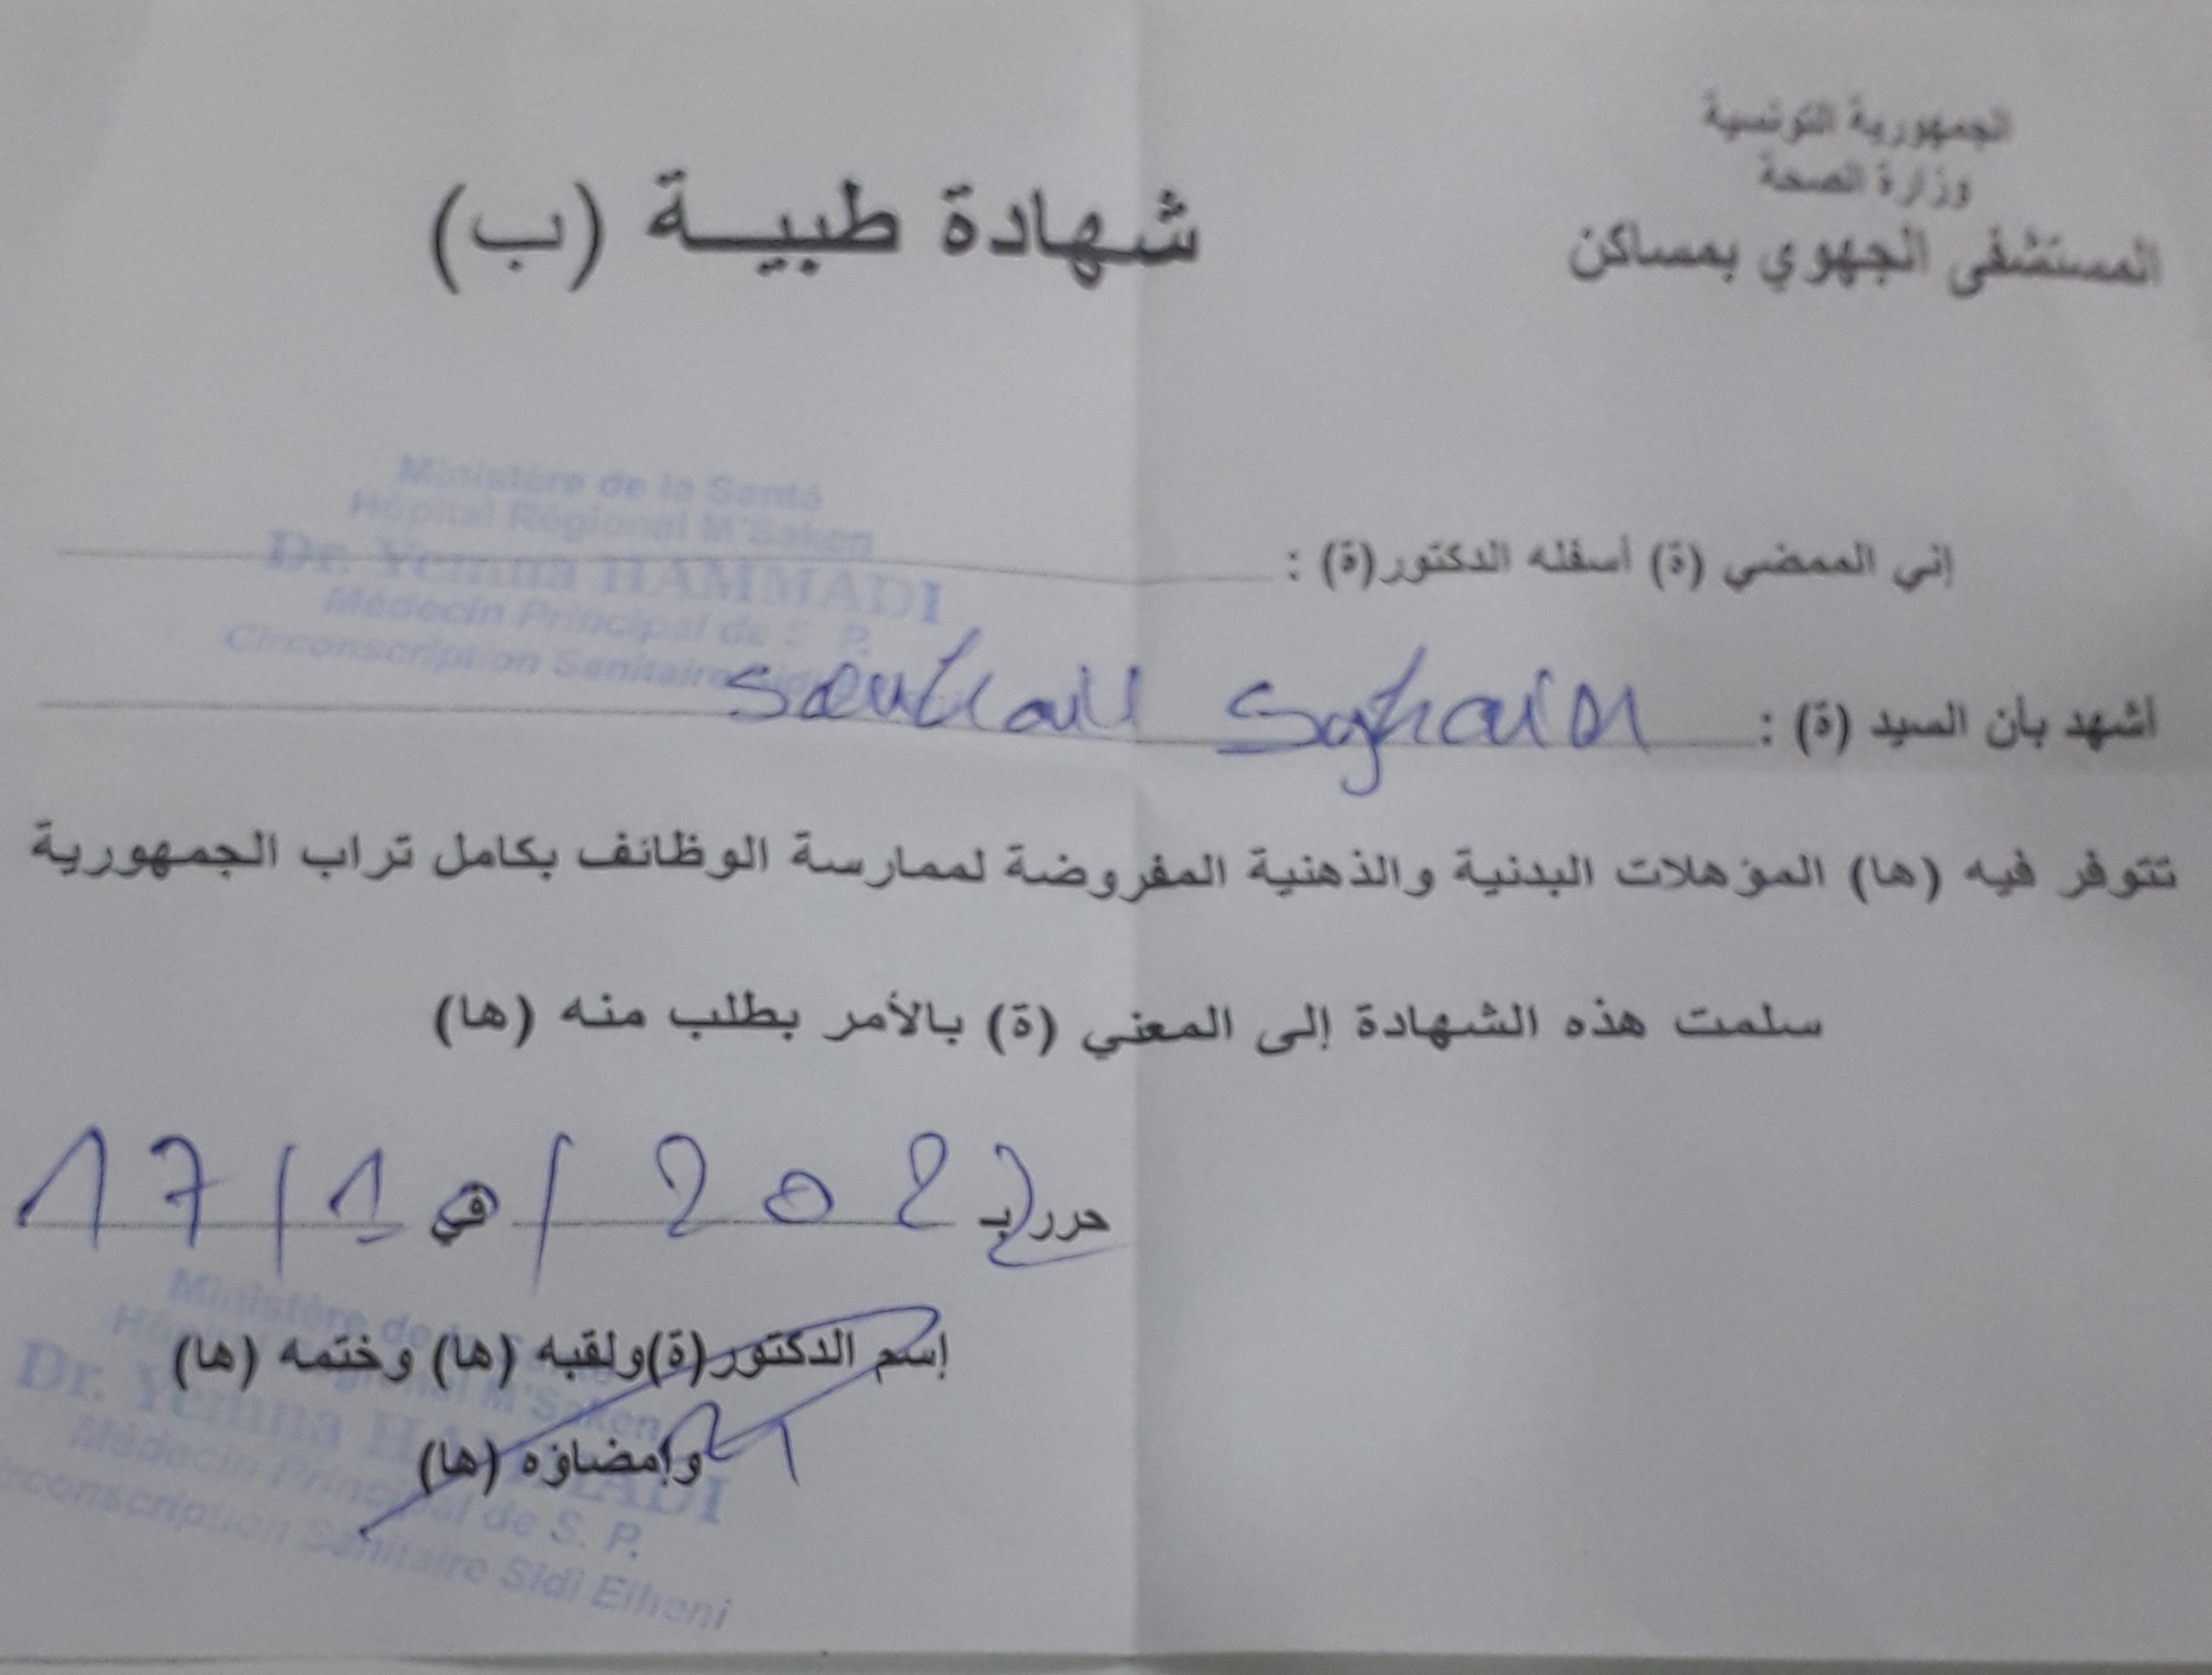 الجمهورية التونسية
وزارة الصحة
المستشفى الجهوي بمساكن
شهادة طبيـــة (ب)
إني الممضي (ة) أسفله الدكتور(ة) :
Ministère de la Santé
Hôpital Régional M'Saken
Dr. Yemna HAMMADI
Médecin Principal de S. P.
Circonscription Sanitaire Sidi
أشهد بأن السيد (ة) :
تتوفر فيه (ها) المؤهلات البدنية والذهنية المفروضة لممارسة الوظائف بكامل تراب الجمهورية
سلمت هذه الشهادة إلى المعني (ة) بالأمر بطلب منه (ها)
حرر بـ في 17/10/2022
إسم الدكتور(ة)ولقبه (ها) وختمه (ها)
وإمضاؤه (ها)
Ministère de la Santé
Hôpital Régional M'Saken
Dr. Yemna HAMMADI
Médecin Principal de S. P.
Circonscription Sanitaire Sidi Elheni